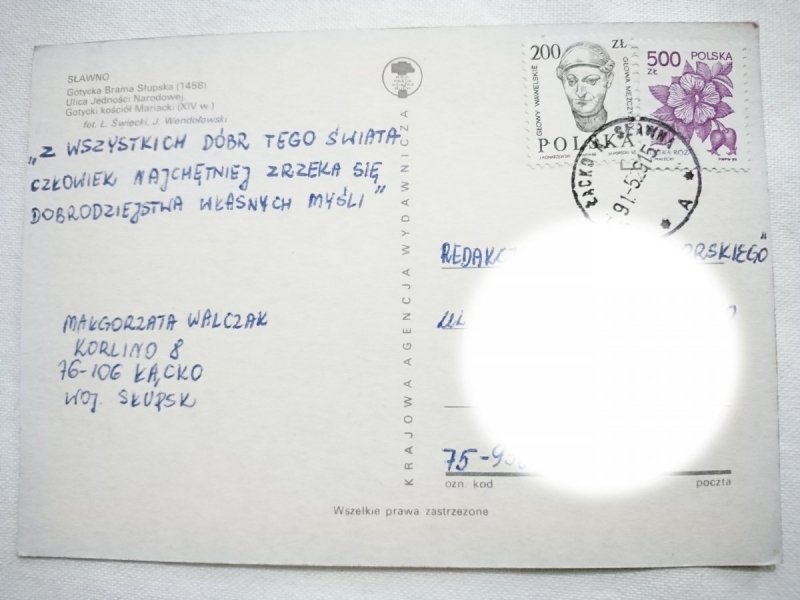 SŁAWNO
Gotycka Brama Słupska (1458)
Ulica Jedności Narodowej
Gotycki kościół Mariacki (XIV w.)
fot. L. Święcki, J. Wendołowski
„Z WSZYSTKICH DÓBR TEGO ŚWIATA
CZŁOWIEK NAJCHĘTNIEJ ZRZEKA SIĘ
DOBRODZIEJSTWA WŁASNYCH MYŚLI”
MAŁGORZATA WALCZAK
KORLINO 8
76-106 ŁĄCKO
WOJ. SŁUPSK
KRAJOWA AGENCJA WYDAWNICZA
200 ZŁ
GŁOWY WAWELSKIE
GŁOWA MĘŻCZ
POLSKA
500 ZŁ
POLSKA
ŁĄCKO K. SŁAWNA
91-5
A
REDAKC ORSKIEGO”
UL
75-95
ozn. kod poczta
Wszelkie prawa zastrzeżone